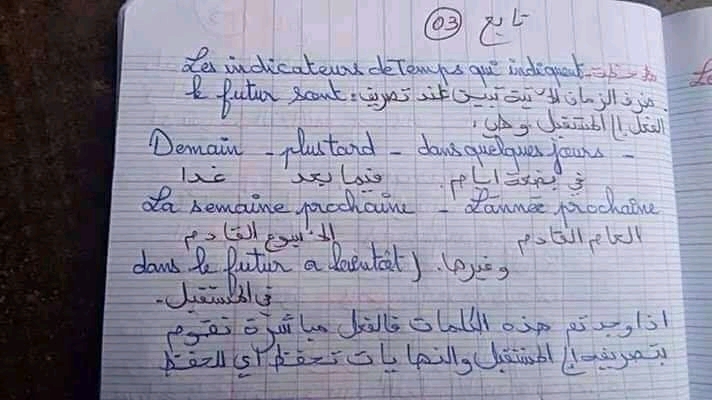 تابع 03
ملاحظة Les indicateurs de Temps qui indiquent
le futur sont: ظرف الزمان الآتية تبين عند تصريف
الفعل إلى المستقبل وهي:
Demain - plus tard - dans quelques jours -
غدا فيما بعد في بضعة ايام.
La semaine prochaine - L'année prochaine
الاسبوع القادم العام القادم
dans le futur a bientôt) وغيرها.
في المستقبل -
اذا وجدتم هذه الكلمات فالفعل مباشرة نقوم
بتصريفه إلى المستقبل والنهايات تحفظ أي للحفظ